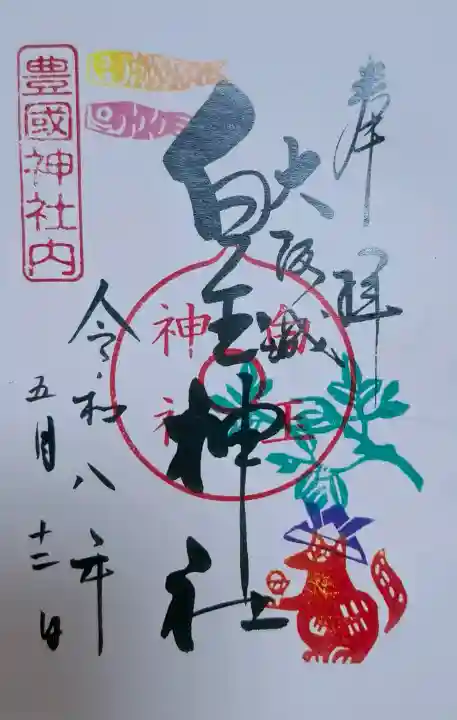 奉拝
大阪城
白玉神社
白玉
神社
令和八年
五月十二日
豊國神社内